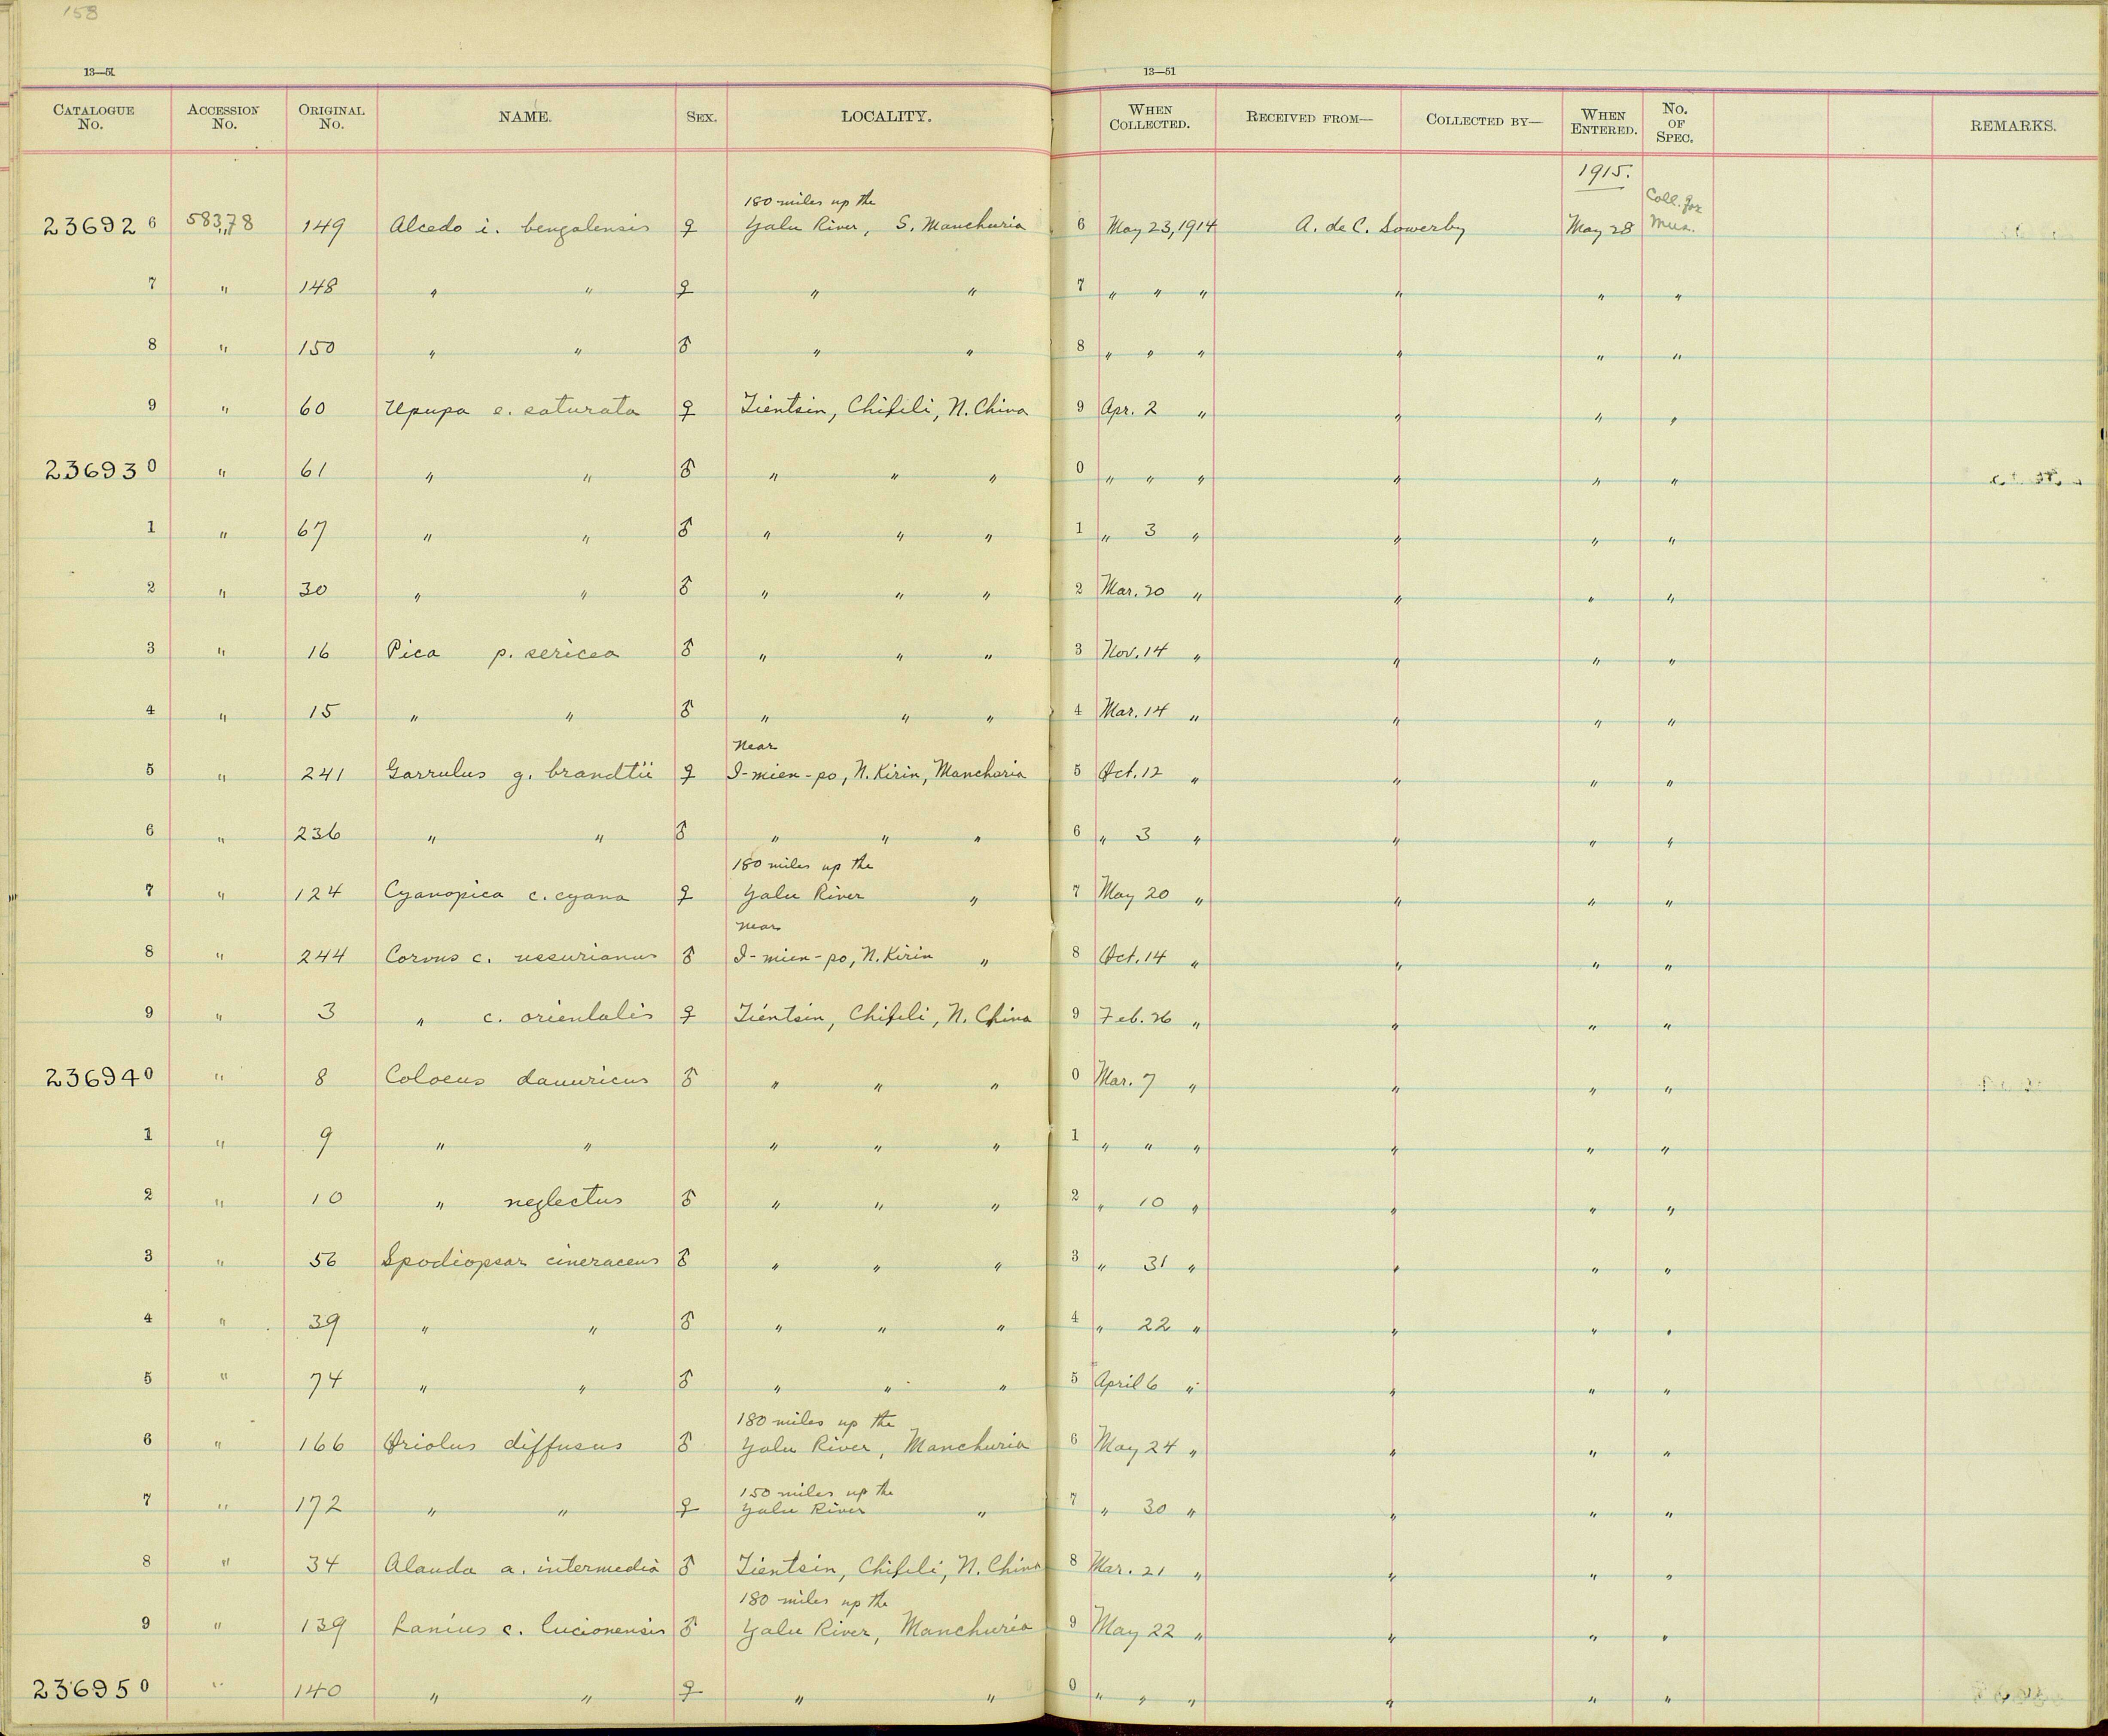 158
13—51
13—51
CATALOGUE No. ACCESSION No. ORIGINAL No. NAME. SEX. LOCALITY. WHEN COLLECTED. RECEIVED FROM— COLLECTED BY— WHEN ENTERED. No. OF SPEC. REMARKS.
1915.
180 miles up the Coll. for
23692 6 58378 149 Alcedo i. bengalensis ♀ Yalu River, S. Manchuria 6 May 23, 1914 A. de C. Sowerby May 28 Mus.
7 " 148 " " ♀ " " 7 " " " " " "
8 " 150 " " ♂ " " 8 " " " " " "
9 " 60 Upupa e. saturata ♀ Tientsin, Chihli, N. China 9 Apr. 2 " " " "
23693 0 " 61 " " ♂ " " " 0 " " " " " "
1 " 67 " " ♂ " " " 1 " 3 " " " "
2 " 30 " " ♂ " " " 2 Mar. 20 " " " "
3 " 16 Pica p. sericea ♂ " " " 3 Nov. 14 " " " "
4 " 15 " " ♂ " " " 4 Mar. 14 " " " "
Near
5 " 241 Garrulus g. brandtii ♀ I-mien-po, N. Kirin, Manchuria 5 Oct. 12 " " " "
6 " 236 " " ♂ " " " 6 " 3 " " " "
180 miles up the
7 " 124 Cyanopica c. cyana ♀ Yalu River " 7 May 20 " " " "
Near
8 " 244 Corvus c. ussurianus ♂ I-mien-po, N. Kirin " 8 Oct. 14 " " " "
9 " 3 " c. orientalis ♀ Tientsin, Chihli, N. China 9 Feb. 26 " " " "
23694 0 " 8 Coloeus dauuricus ♂ " " " 0 Mar. 7 " " " "
1 " 9 " " " " " 1 " " " " " "
2 " 10 " neglectus ♂ " " " 2 " 10 " " " "
3 " 56 Spodiopsar cineraceus ♂ " " " 3 " 31 " " " "
4 " 39 " " ♂ " " " 4 " 22 " " " "
5 " 74 " " ♂ " " " 5 April 6 " " " "
180 miles up the
6 " 166 Oriolus diffusus ♂ Yalu River, Manchuria 6 May 24 " " " "
150 miles up the
7 " 172 " " ♀ Yalu River " 7 " 30 " " " "
8 " 34 Alauda a. intermedia ♂ Tientsin, Chihli, N. China 8 Mar. 21 " " " "
180 miles up the
9 " 139 Lanius c. lucionensis ♂ Yalu River, Manchuria 9 May 22 " " " "
23695 0 " 140 " " ♀ " " 0 " " " " " "